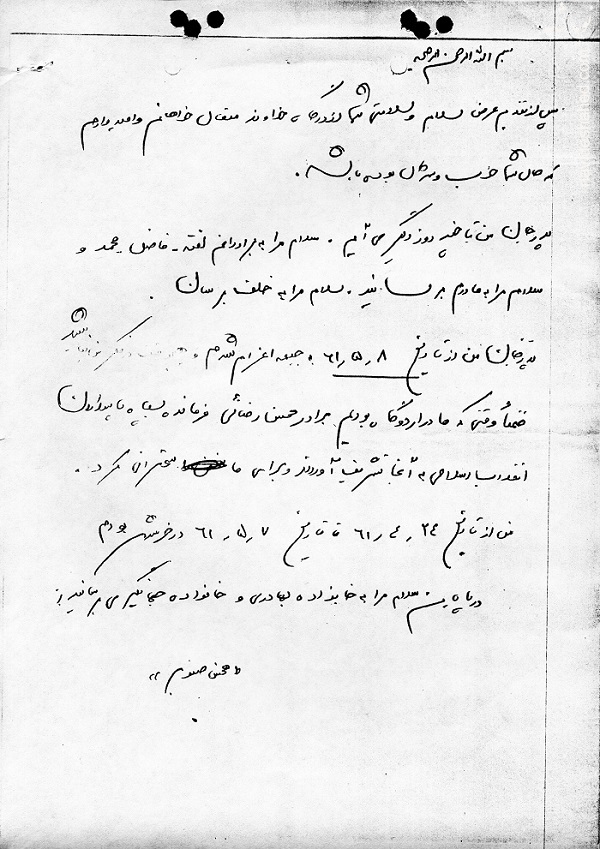 بسم الله الرحمن الرحیم
پس از تقدیم عرض سلام و سلامتی شما از درگاه خداوند متعال خواهانم و امیدوارم
که حال شما خوب و بوده باشد.
پدر جان من تا چند روز دیگر می آیم. سلام مرا به برادرانم فاضل محمد و
سلام مرا به مادرم برسانید. سلام مرا به خلف برسان
پدر جان من از تاریخ ۶۱/۵/۸ به جبهه اعزام شدم
ضمناً وقتی که ما در اردوگاه بودیم برادر حسن رضائی فرمانده سپاه پاسداران
انقلاب اسلامی به آنجا تشریف آوردند و برای ما سخنرانی کرد.
من از تاریخ ۶۱/۴/۲۴ تا تاریخ ۶۱/۵/۷ در خرمشهر بودم
در پایان سلام مرا به خانواده و خانواده جهانگیری برسانید